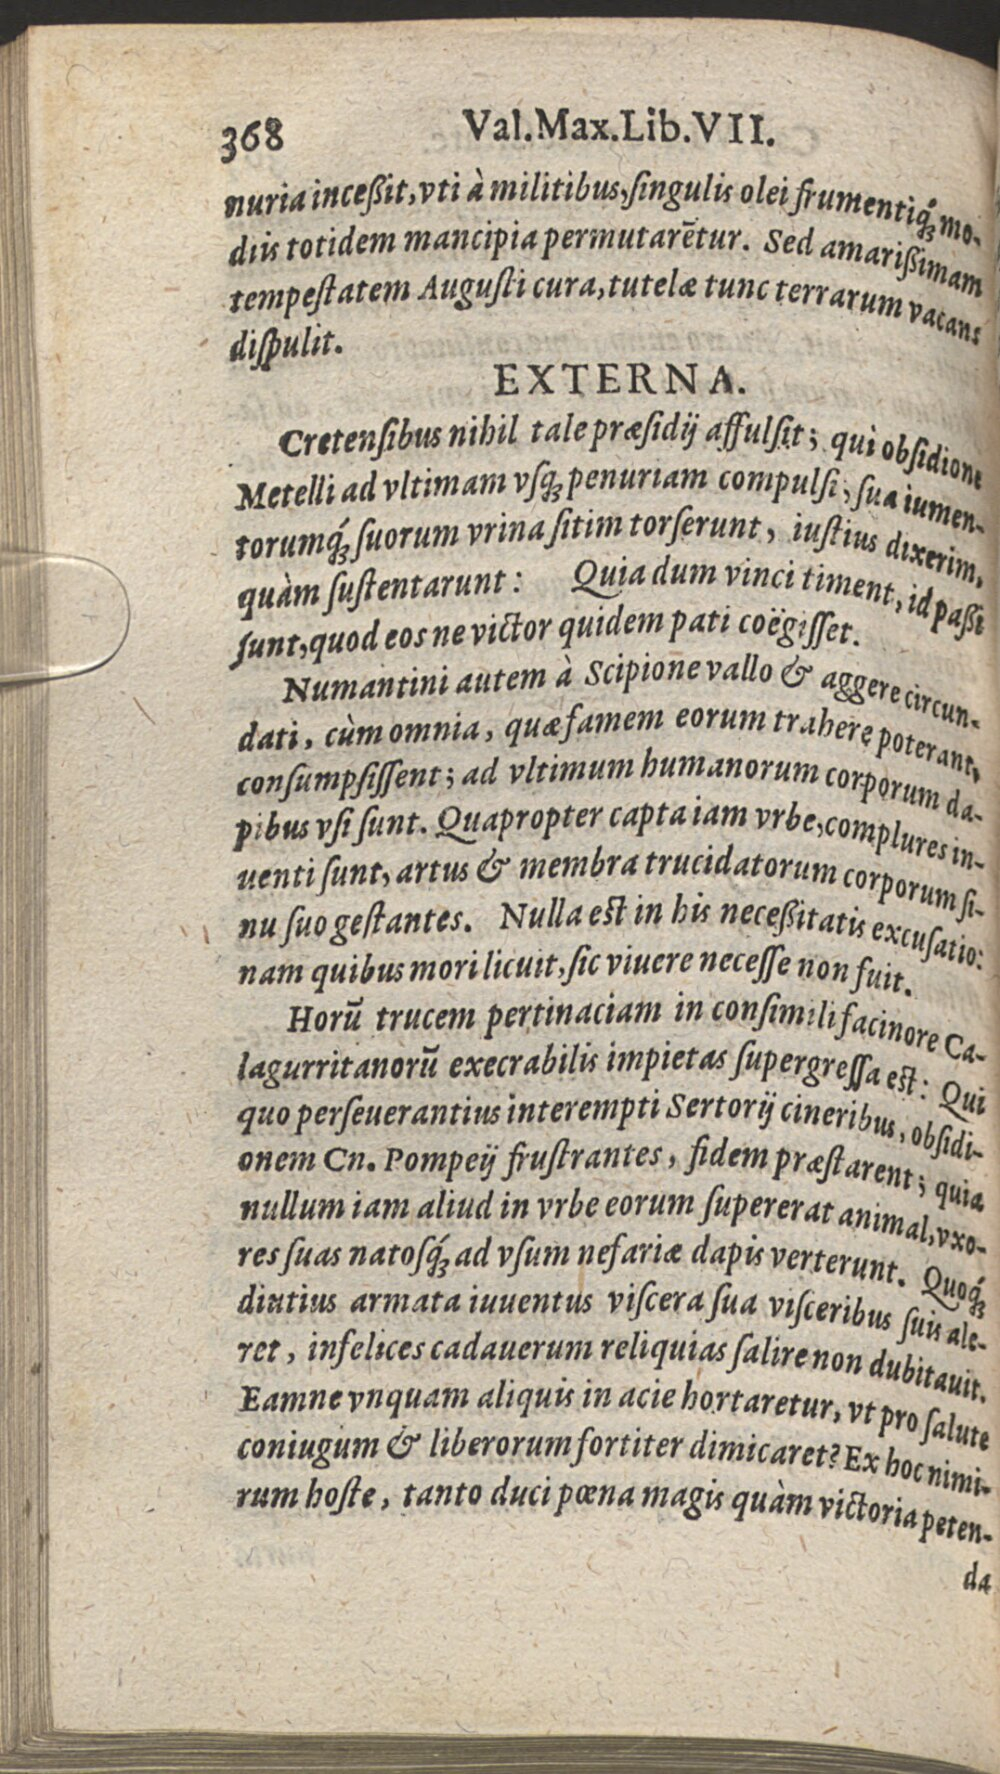 368 Val.Max.Lib.VII.
nuria inceßit, vti à militibus, ſingulis olei frumentiq́ꝫ mo-
diis totidem mancipia permutarētur. Sed amarißimam
tempeſtatem Auguſti cura, tutelæ tunc terrarum vacans
diſpulit.
EXTERNA.
Cretenſibus nihil tale præſidij affulſit; qui obſidione
Metelli ad vltimam vſqꝫ penuriam compulſi, ſua iumen-
torumq́ꝫ ſuorum vrina ſitim torſerunt, iuſtius dixerim,
quàm ſuſtentarunt: Quia dum vinci timent, id paßi
ſunt, quod eos ne victor quidem pati coëgiſſet.
Numantini autem à Scipione vallo & aggere circun-
dati, cùm omnia, quæ famem eorum trahere poterant,
conſumpſiſſent; ad vltimum humanorum corporum da-
pibus vſi ſunt. Quapropter capta iam vrbe, complures in-
uenti ſunt, artus & membra trucidatorum corporum ſi-
nu ſuo geſtantes. Nulla eſt in his neceßitatis excuſatio:
nam quibus mori licuit, ſic viuere neceſſe non fuit.
Horū trucem pertinaciam in conſimili facinore Ca-
lagurritanorū execrabilis impietas ſupergreſſa eſt: Qui
quo perſeuerantius interempti Sertorij cineribus, obſidi-
onem Cn. Pompeij fruſtrantes, fidem præſtarent; quia
nullum iam aliud in vrbe eorum ſupererat animal, vxo-
res ſuas natoſq́ꝫ ad vſum nefariæ dapis verterunt. Quoq́ꝫ
diutius armata iuuentus viſcera ſua viſceribus ſuis ale-
ret, infelices cadauerum reliquias ſalire non dubitauit.
Eamne vnquam aliquis in acie hortaretur, vt pro ſalute
coniugum & liberorum fortiter dimicaret? Ex hoc nimi-
rum hoſte, tanto duci pœna magis quàm victoria peten-
da